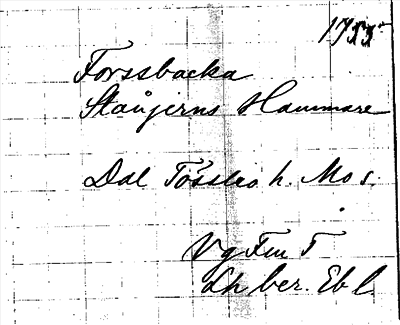 1755
Forssbacka
Stångjerns Hammare
Dal Tössbo h. Mo s.
Vg Fm T
Lh ber. Ebl.